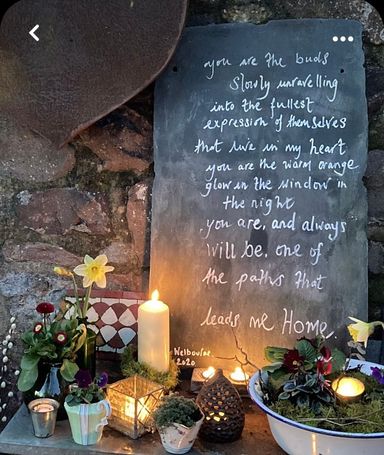 you are the buds
slowly unravelling
into the fullest
expression of themselves
that live in my heart
you are the warm orange
glow in the window in
the night
you are, and always
will be, one of
the paths that
leads me Home.
Welbourne
2020